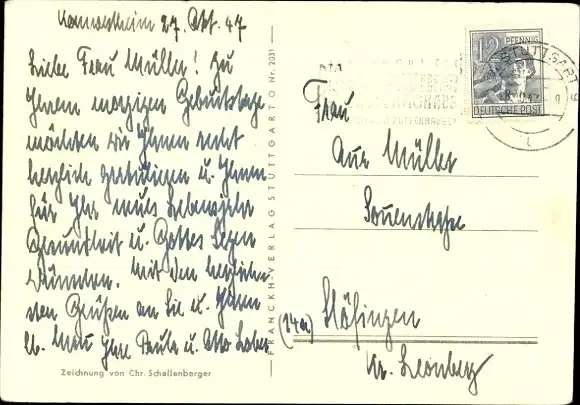 Kornwestheim 27. Okt. 47
Liebe Frau Müller! Zu
Ihrem morgigen Geburtstage
möchten wir Ihnen recht
herzlich gratulieren u. Ihnen
für Ihr neues Lebensjahr
Gesundheit u. Gottes Segen
wünschen. Mit den herzlich-
sten Grüßen an Sie u. Ihren
lb. Mann Ihre Paula u. Otto
Zeichnung von Chr. Schellenberger
FRANCKH-VERLAG STUTTGART O Nr. 2031
12 PFENNIG
DEUTSCHE POST
STUTTGART
Frau
Müller
(14a)
Kr. Leonberg